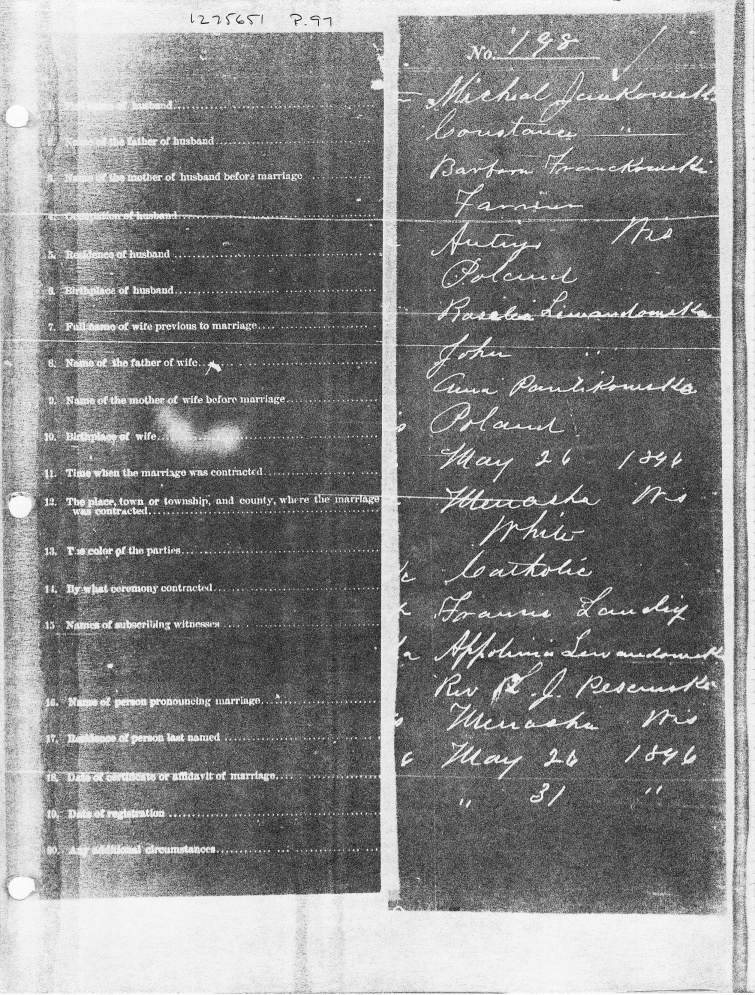 1225651 P.97
1. Full name of husband
2. Name of the father of husband
3. Name of the mother of husband before marriage
4. Occupation of husband
5. Residence of husband
6. Birthplace of husband
7. Full name of wife previous to marriage
8. Name of the father of wife
9. Name of the mother of wife before marriage
10. Birthplace of wife
11. Time when the marriage was contracted
12. The place, town or township, and county, where the marriage
was contracted
13. The color of the parties
14. By what ceremony contracted
15 Names of subscribing witnesses
16. Name of person pronouncing marriage
17. Residence of person last named
18. Date of certificate or affidavit of marriage
19. Date of registration
20. Any additional circumstances
No. 198
Micheal Jankowski
Constance "
Barbara Franckowski
Farmer
Wis
Poland
Rosalia Liwandowska
John "
Anna
Poland
May 26 1896
Menasha Wis
White
Catholic
Landig
Appolinia Lewandowska
Rev J.
Menasha Wis
May 26 1896
" 31 "